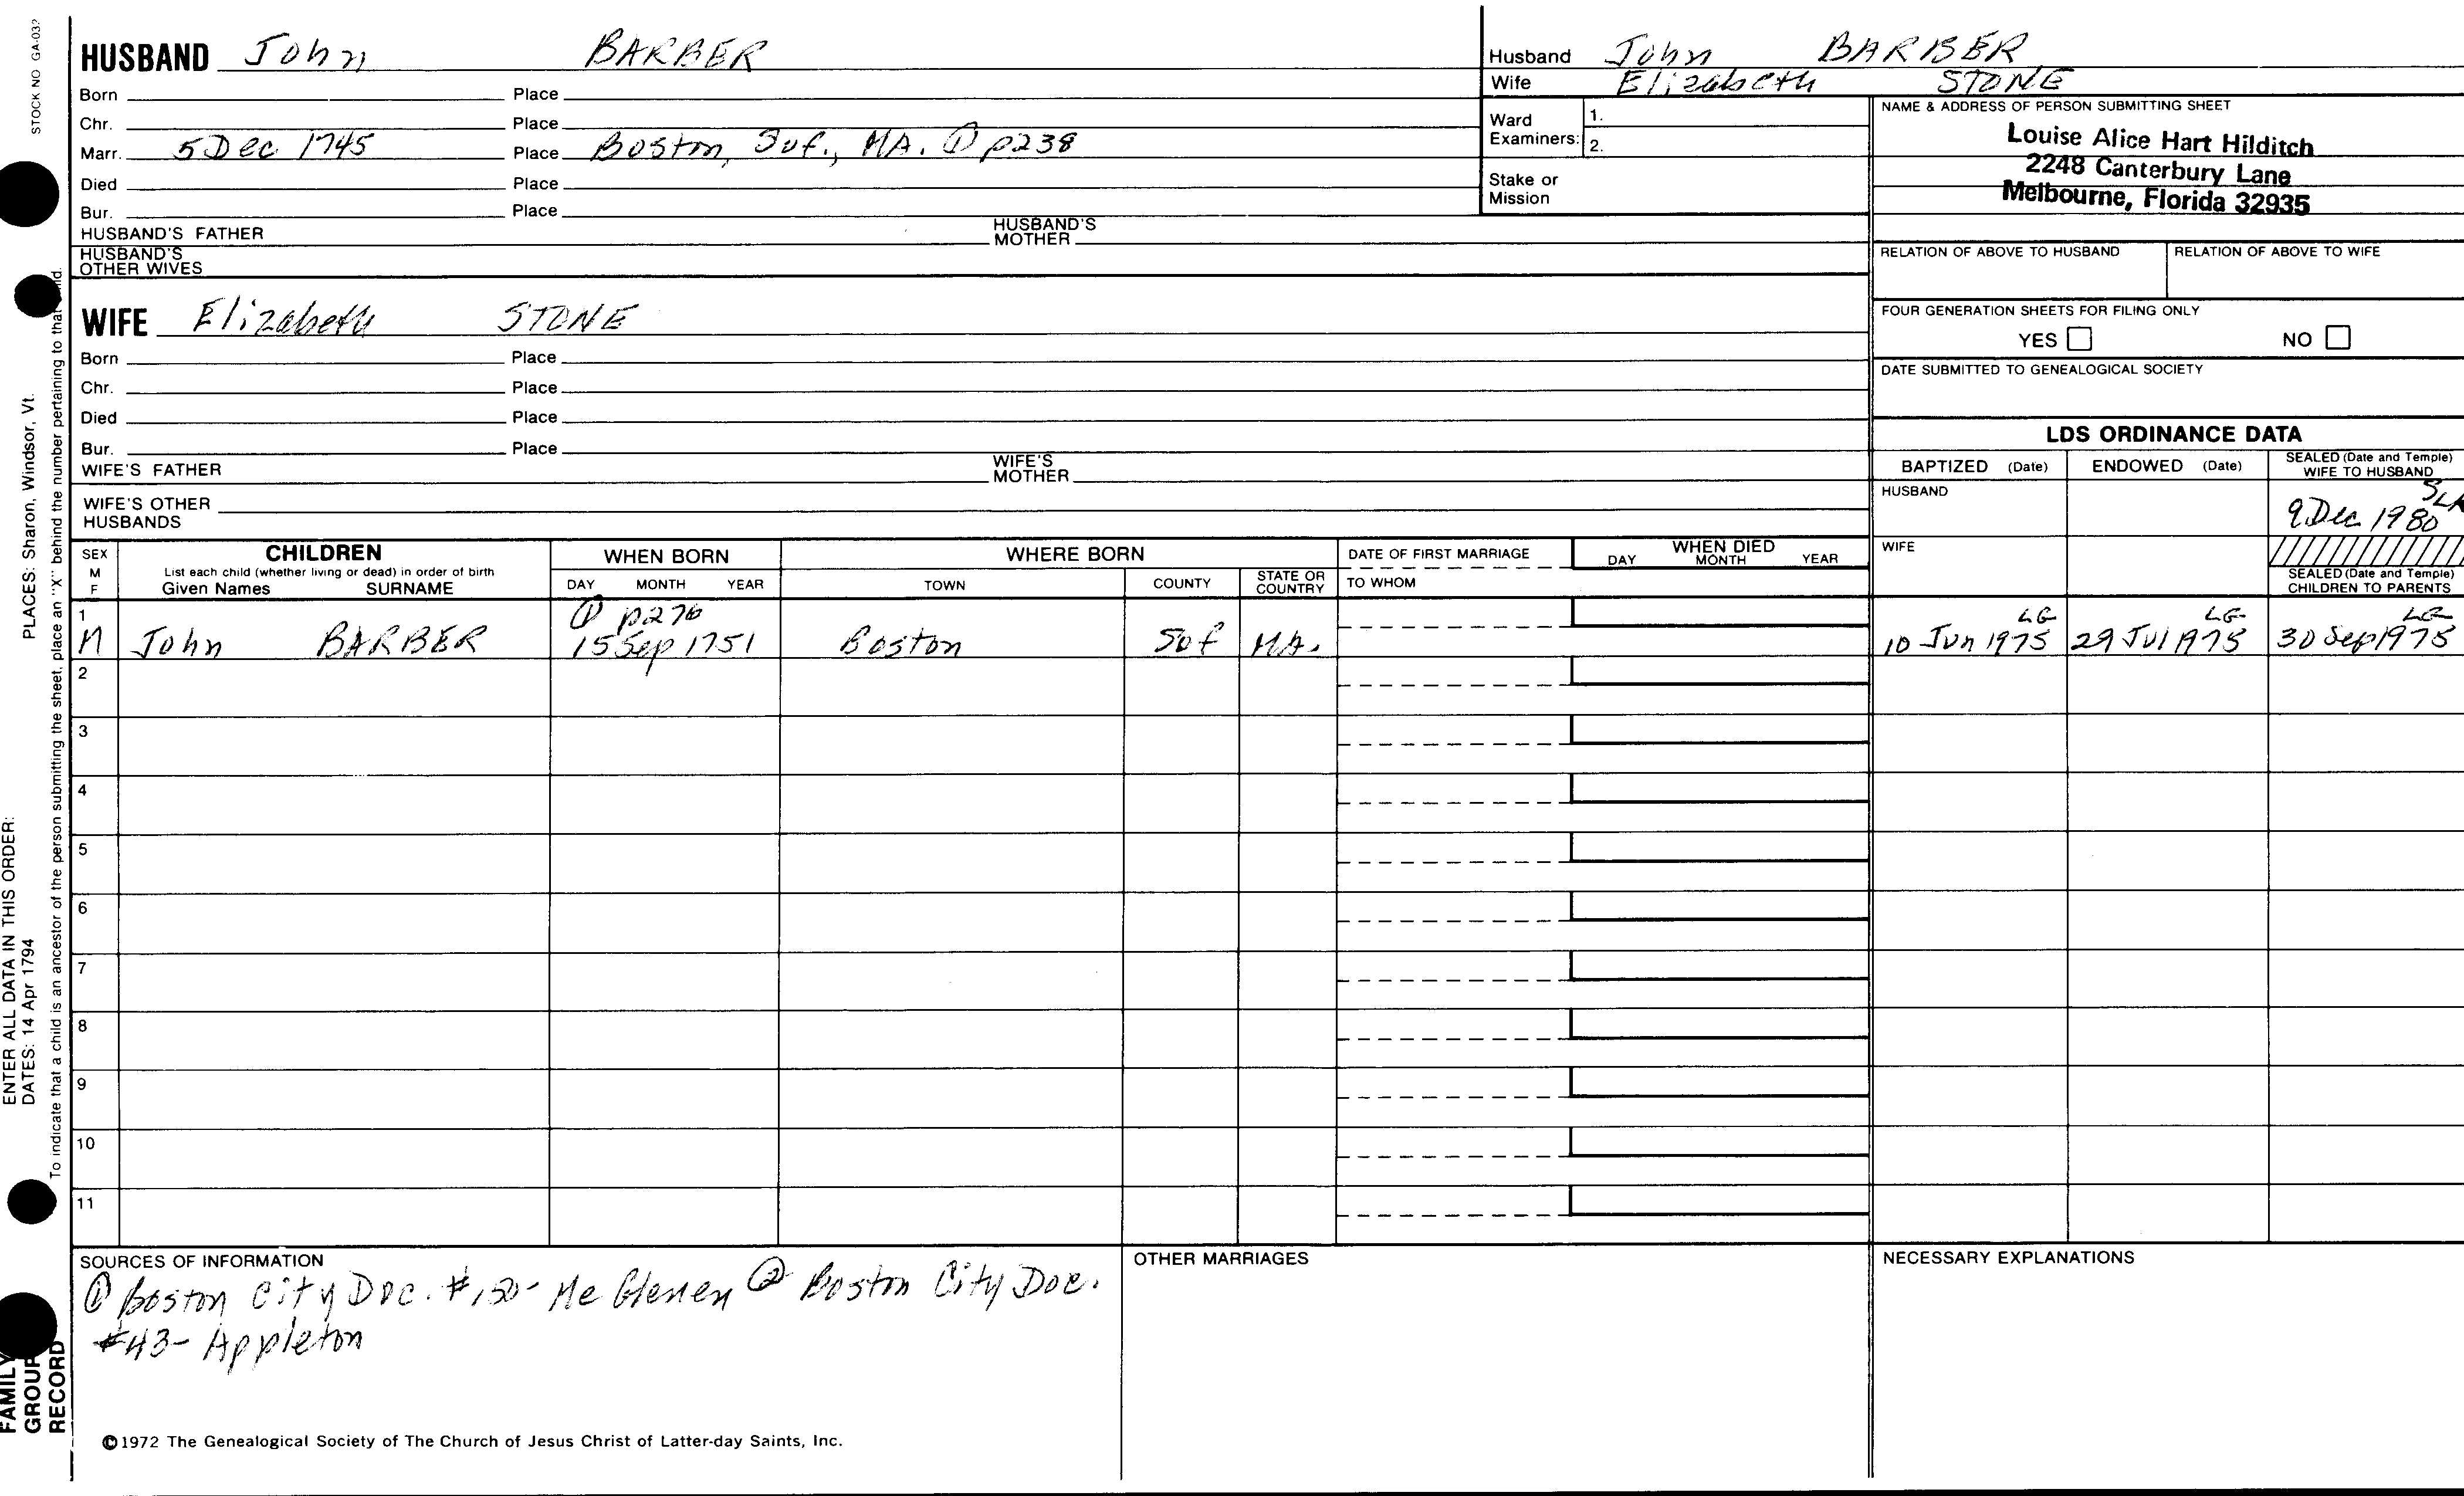 STOCK NO GA-032
HUSBAND John BARBER
Born Place
Chr. Place
Marr. 5 Dec 1745 Place Boston, Suf., MA. ① p238
Died Place
Bur. Place
HUSBAND'S FATHER HUSBAND'S MOTHER
HUSBAND'S OTHER WIVES
WIFE Elizabeth STONE
Born Place
Chr. Place
Died Place
Bur. Place
WIFE'S FATHER WIFE'S MOTHER
WIFE'S OTHER HUSBANDS
Husband John BARBER
Wife Elizabeth STONE
Ward Examiners: 1.
2.
Stake or Mission
NAME & ADDRESS OF PERSON SUBMITTING SHEET
Louise Alice Hart Hilditch
2248 Canterbury Lane
Melbourne, Florida 32935
RELATION OF ABOVE TO HUSBAND RELATION OF ABOVE TO WIFE
FOUR GENERATION SHEETS FOR FILING ONLY
YES NO
DATE SUBMITTED TO GENEALOGICAL SOCIETY
LDS ORDINANCE DATA
BAPTIZED (Date) ENDOWED (Date) SEALED (Date and Temple) WIFE TO HUSBAND
HUSBAND 9 Dec 1980
WIFE
SEALED (Date and Temple) CHILDREN TO PARENTS
SEX M F CHILDREN WHEN BORN WHERE BORN DATE OF FIRST MARRIAGE WHEN DIED
List each child (whether living or dead) in order of birth
Given Names SURNAME DAY MONTH YEAR TOWN COUNTY STATE OR COUNTRY TO WHOM DAY MONTH YEAR
1 ① p276 LG LG LG
M John BARBER 15 Sep 1751 Boston Suf MA. 10 Jun 1975 29 Jul 1975 30 Sep 1975
2
3
4
5
6
7
8
9
10
11
SOURCES OF INFORMATION
① Boston City Doc. #150- Mc Glenen ② Boston City Doc.
#43- Appleton
OTHER MARRIAGES
NECESSARY EXPLANATIONS
©1972 The Genealogical Society of The Church of Jesus Christ of Latter-day Saints, Inc.
ENTER ALL DATA IN THIS ORDER:
DATES: 14 Apr 1794 PLACES: Sharon, Windsor, Vt.
To indicate that a child is an ancestor of the person submitting the sheet, place an "X" behind the number pertaining to that
FAMILY
GROUP
RECORD